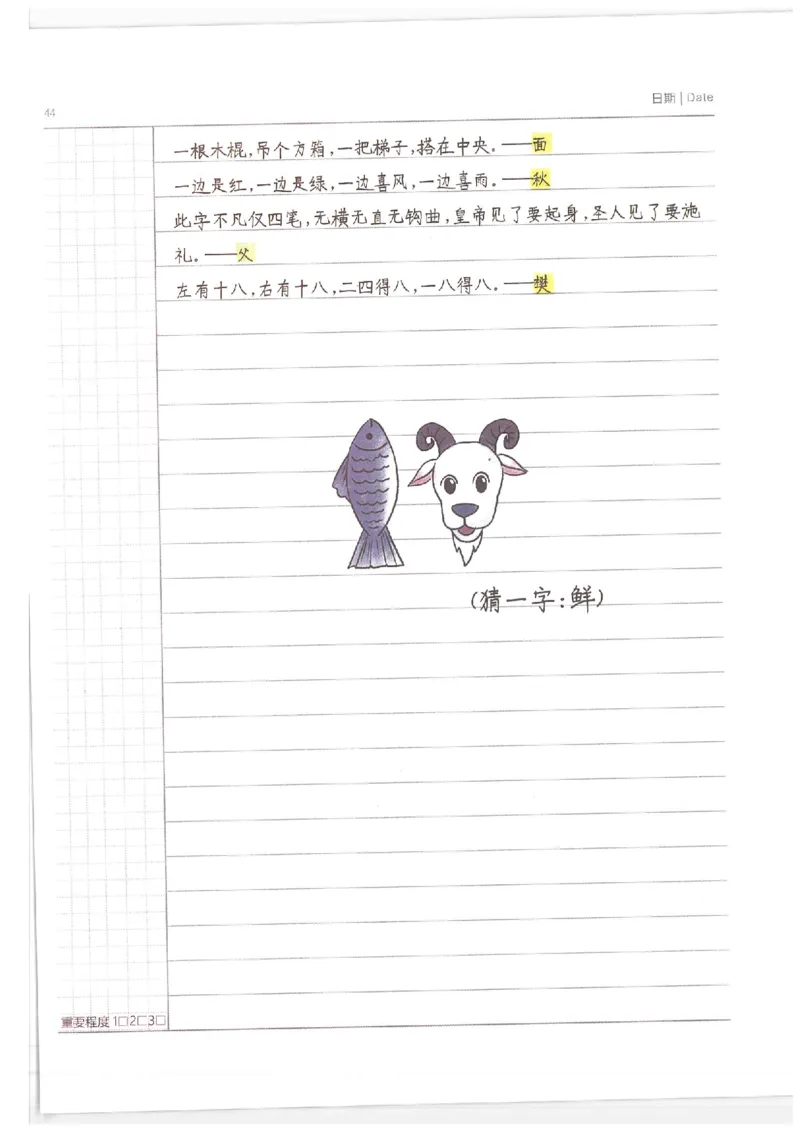 44
日期 | Date
一根木棍,吊个方箱,一把梯子,搭在中央。——面
一边是红,一边是绿,一边喜风,一边喜雨。——秋
此字不凡仅四笔,无横无直无钩曲,皇帝见了要起身,圣人见了要施
礼。——父
左有十八,右有十八,二四得八,一八得八。——樊
(猜一字:鲜)
重要程度 1□2□3□